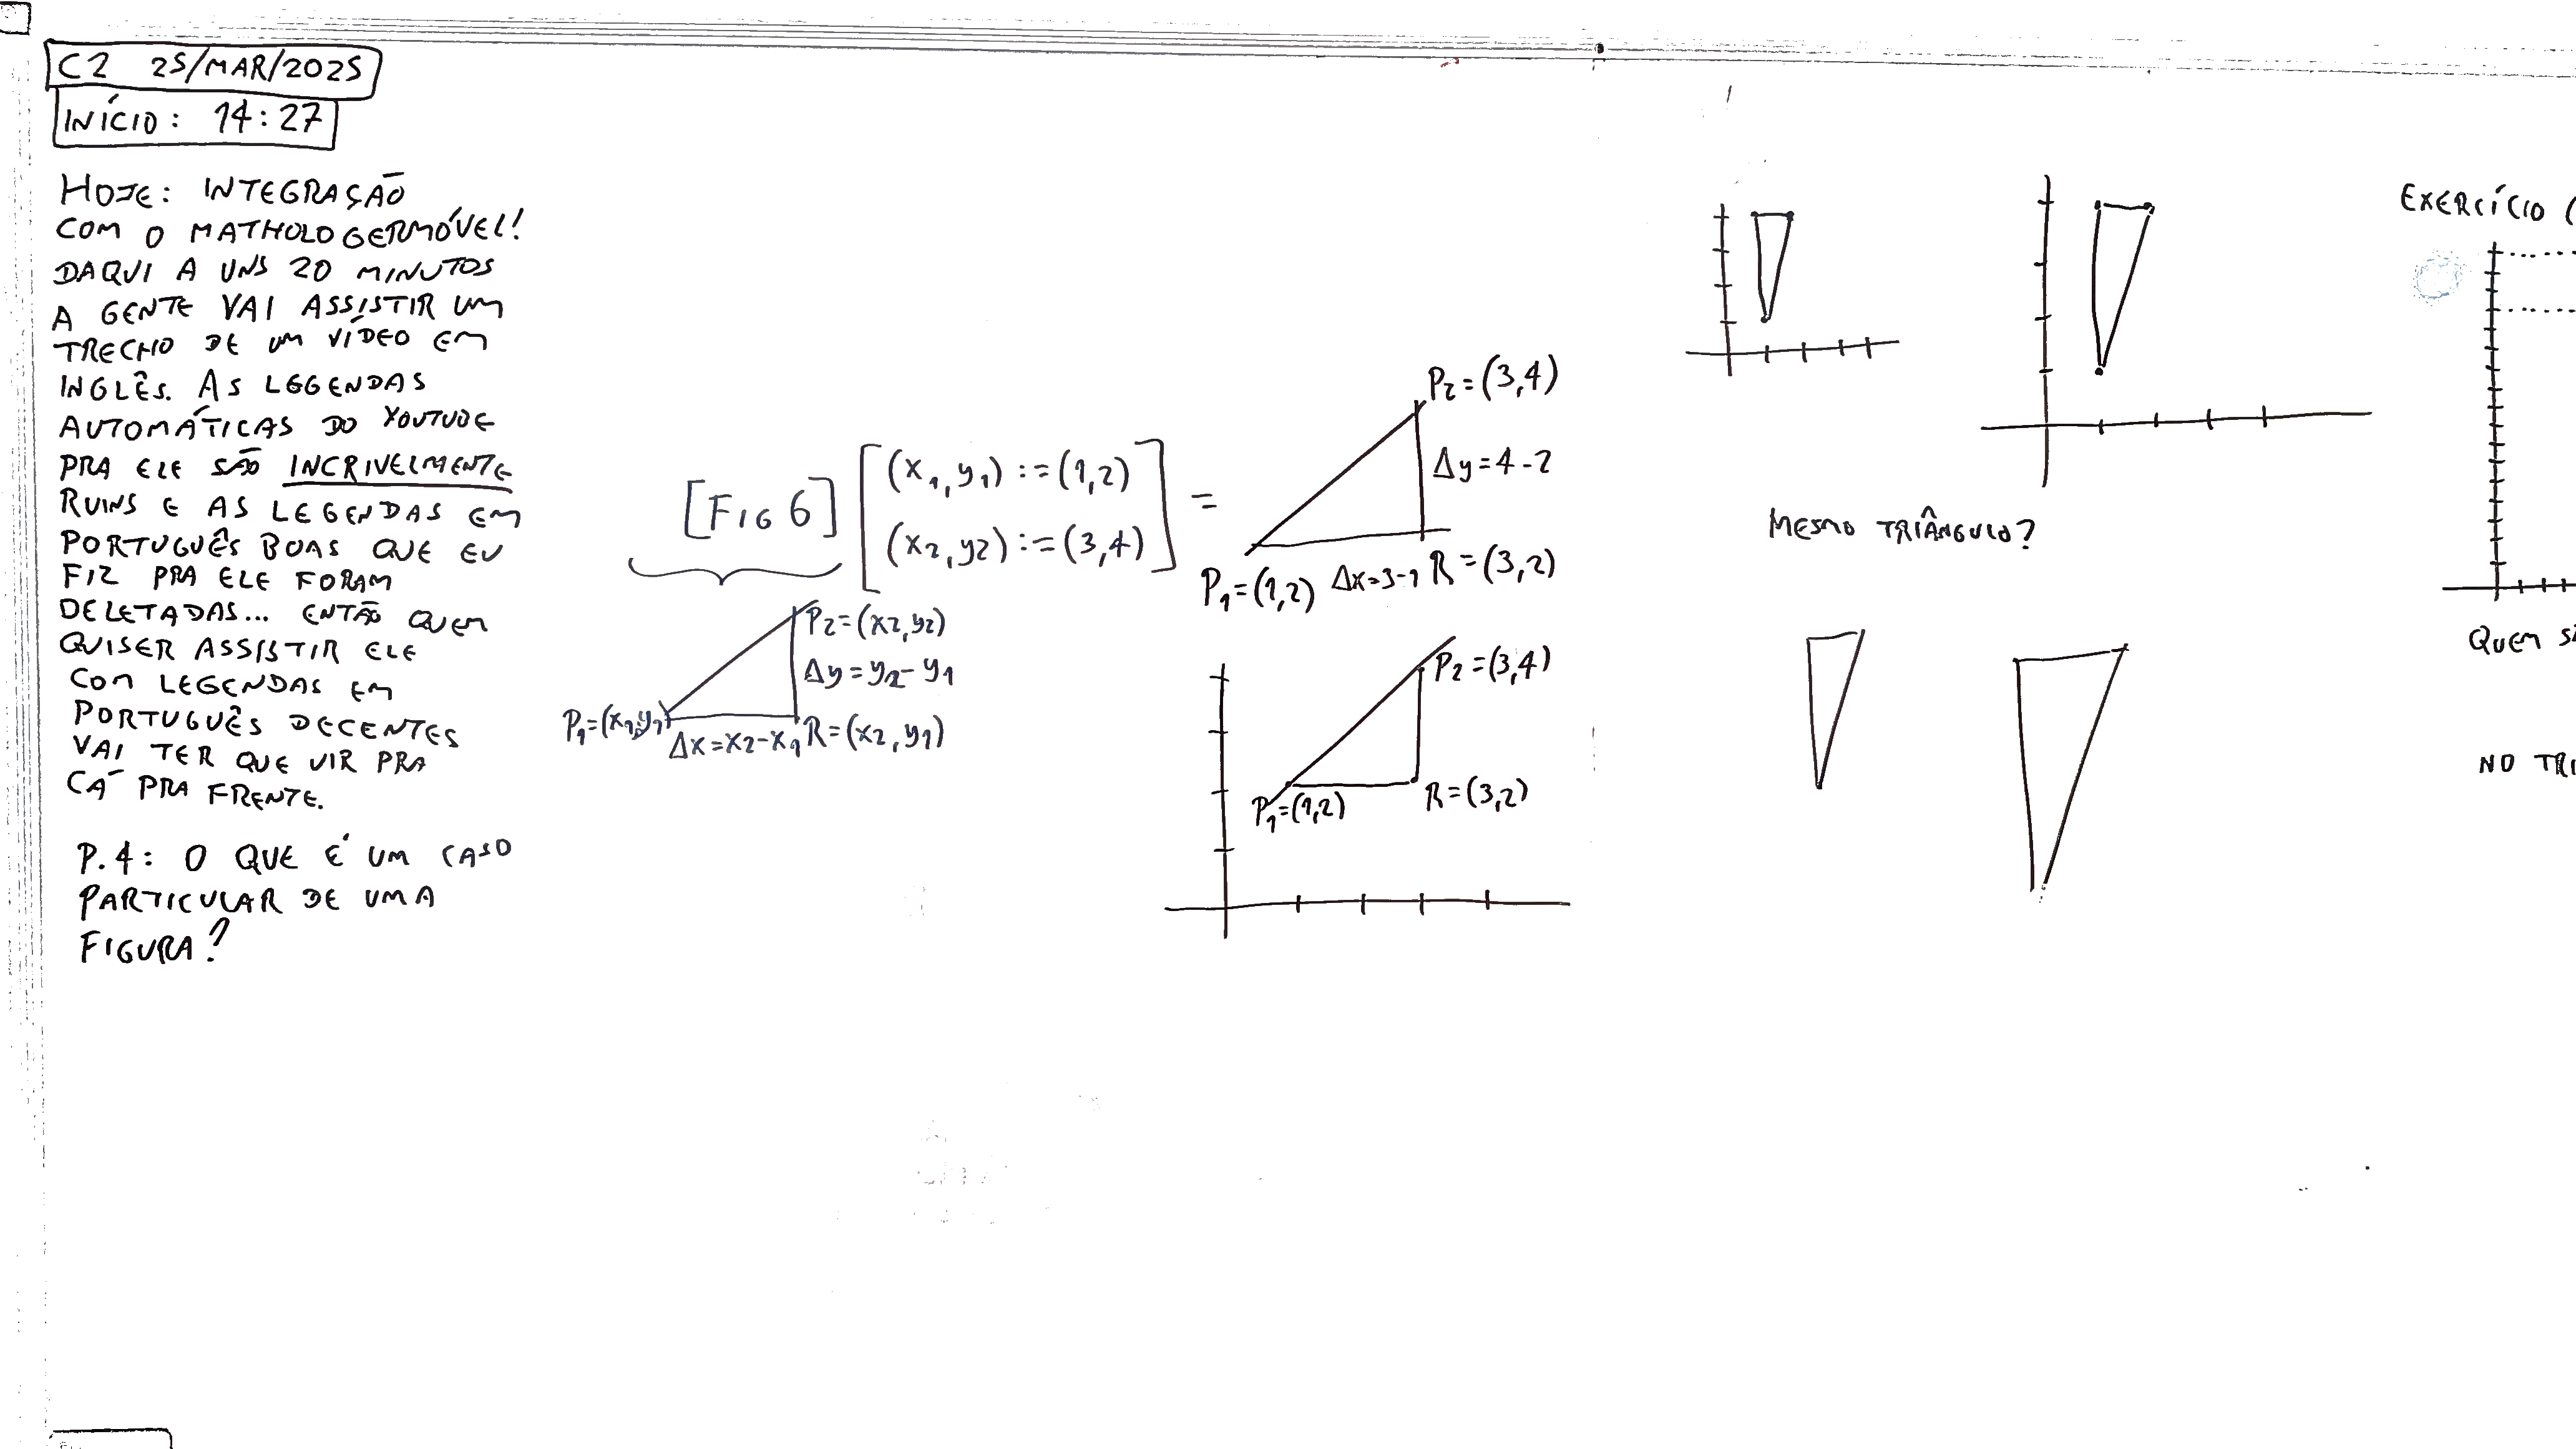 C2 25/MAR/2025
INÍCIO: 14:27
HOJE: INTEGRAÇÃO
COM O MATHOLOGERMÓVEL!
DAQUI A UNS 20 MINUTOS
A GENTE VAI ASSISTIR UM
TRECHO DE UM VÍDEO EM
INGLÊS. AS LEGENDAS
AUTOMÁTICAS DO YOUTUBE
PRA ELE SÃO INCRIVELMENTE
RUINS E AS LEGENDAS EM
PORTUGUÊS BOAS QUE EU
FIZ PRA ELE FORAM
DELETADAS... ENTÃO QUEM
QUISER ASSISTIR ELE
COM LEGENDAS EM
PORTUGUÊS DECENTES
VAI TER QUE VIR PRA
CÁ PRA FRENTE.
P.4: O QUE É UM CASO
PARTICULAR DE UMA
FIGURA?
[FIG 6] [(x₁,y₁) := (1,2)
(x₂,y₂) := (3,4)] =
P₂=(x₂,y₂)
Δy=y₂-y₁
P₁=(x₁,y₁)
Δx=x₂-x₁ R=(x₂,y₁)
P₂=(3,4)
Δy=4-2
P₁=(1,2) Δx=3-1 R=(3,2)
P₂=(3,4)
P₁=(1,2) R=(3,2)
MESMO TRIÂNGULO?
EXERCÍCIO (
QUEM
NO